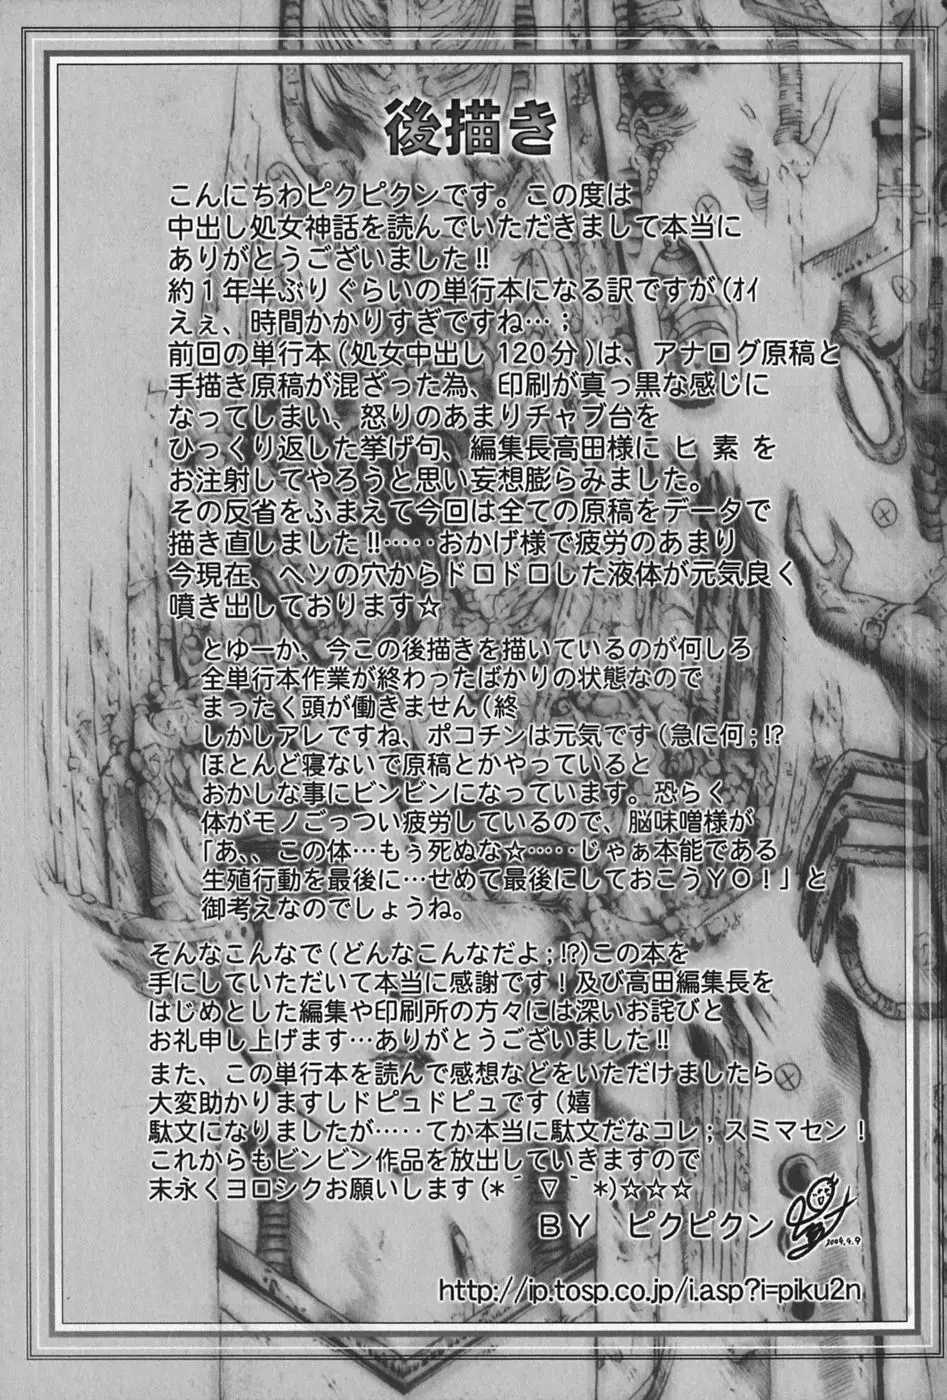 後描き
こんにちわピクピクンです。この度は
中出し処女神話を読んでいただきまして本当に
ありがとうございました!!
約1年半ぶりぐらいの単行本になる訳ですが(ｵｲ
えぇ、時間かかりすぎですね…；
前回の単行本(処女中出し120分)は、アナログ原稿と
手描き原稿が混ざった為、印刷が真っ黒な感じに
なってしまい、怒りのあまりチャブ台を
ひっくり返した挙げ句、編集長高田様にヒ素を
お注射してやろうと思い妄想膨らみました。
その反省をふまえて今回は全ての原稿をデータで
描き直しました!!‥‥‥おかげ様で疲労のあまり
今現在、ヘソの穴からドロドロした液体が元気良く
噴き出しております☆
とゆーか、今この後描きを描いているのが何しろ
全単行本作業が終わったばかりの状態なので
まったく頭が働きません(終
しかしアレですね、ポコチンは元気です(急に何；!?
ほとんど寝ないで原稿とかやっていると
おかしな事にビンビンになっています。恐らく
体がモノごっつい疲労しているので、脳味噌様が
「あ、、この体…もぅ死ぬな☆‥‥‥じゃぁ本能である
生殖行動を最後に…せめて最後にしておこうYO！」と
御考えなのでしょうね。
そんなこんなで(どんなこんなだよ；!?)この本を
手にしていただいて本当に感謝です！及び高田編集長を
はじめとした編集や印刷所の方々には深いお詫びと
お礼申し上げます…ありがとうございました!!
また、この単行本を読んで感想などをいただけましたら
大変助かりますしドピュドピュです(嬉
駄文になりましたが‥‥‥てか本当に駄文だなコレ；スミマセン！
これからもビンビン作品を放出していきますので
末永くヨロシクお願いします(*´▽｀*)☆☆☆
BY ピクピクン
2004.4.9
http://ip.tosp.co.jp/i.asp?i=piku2n